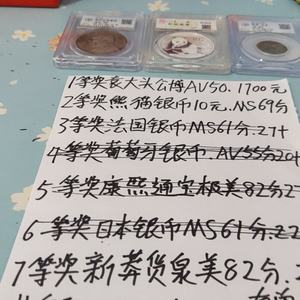 1等奖袁大头公博AV50.1700元
2等奖熊猫银币10元.MS69分
3等奖法国银币MS61分.27+
4等奖葡萄牙银币.AV55分20+
5等奖康熙通宝极美82分2
6等奖日本银币MS61分.22
7等奖新莽货泉美82分.